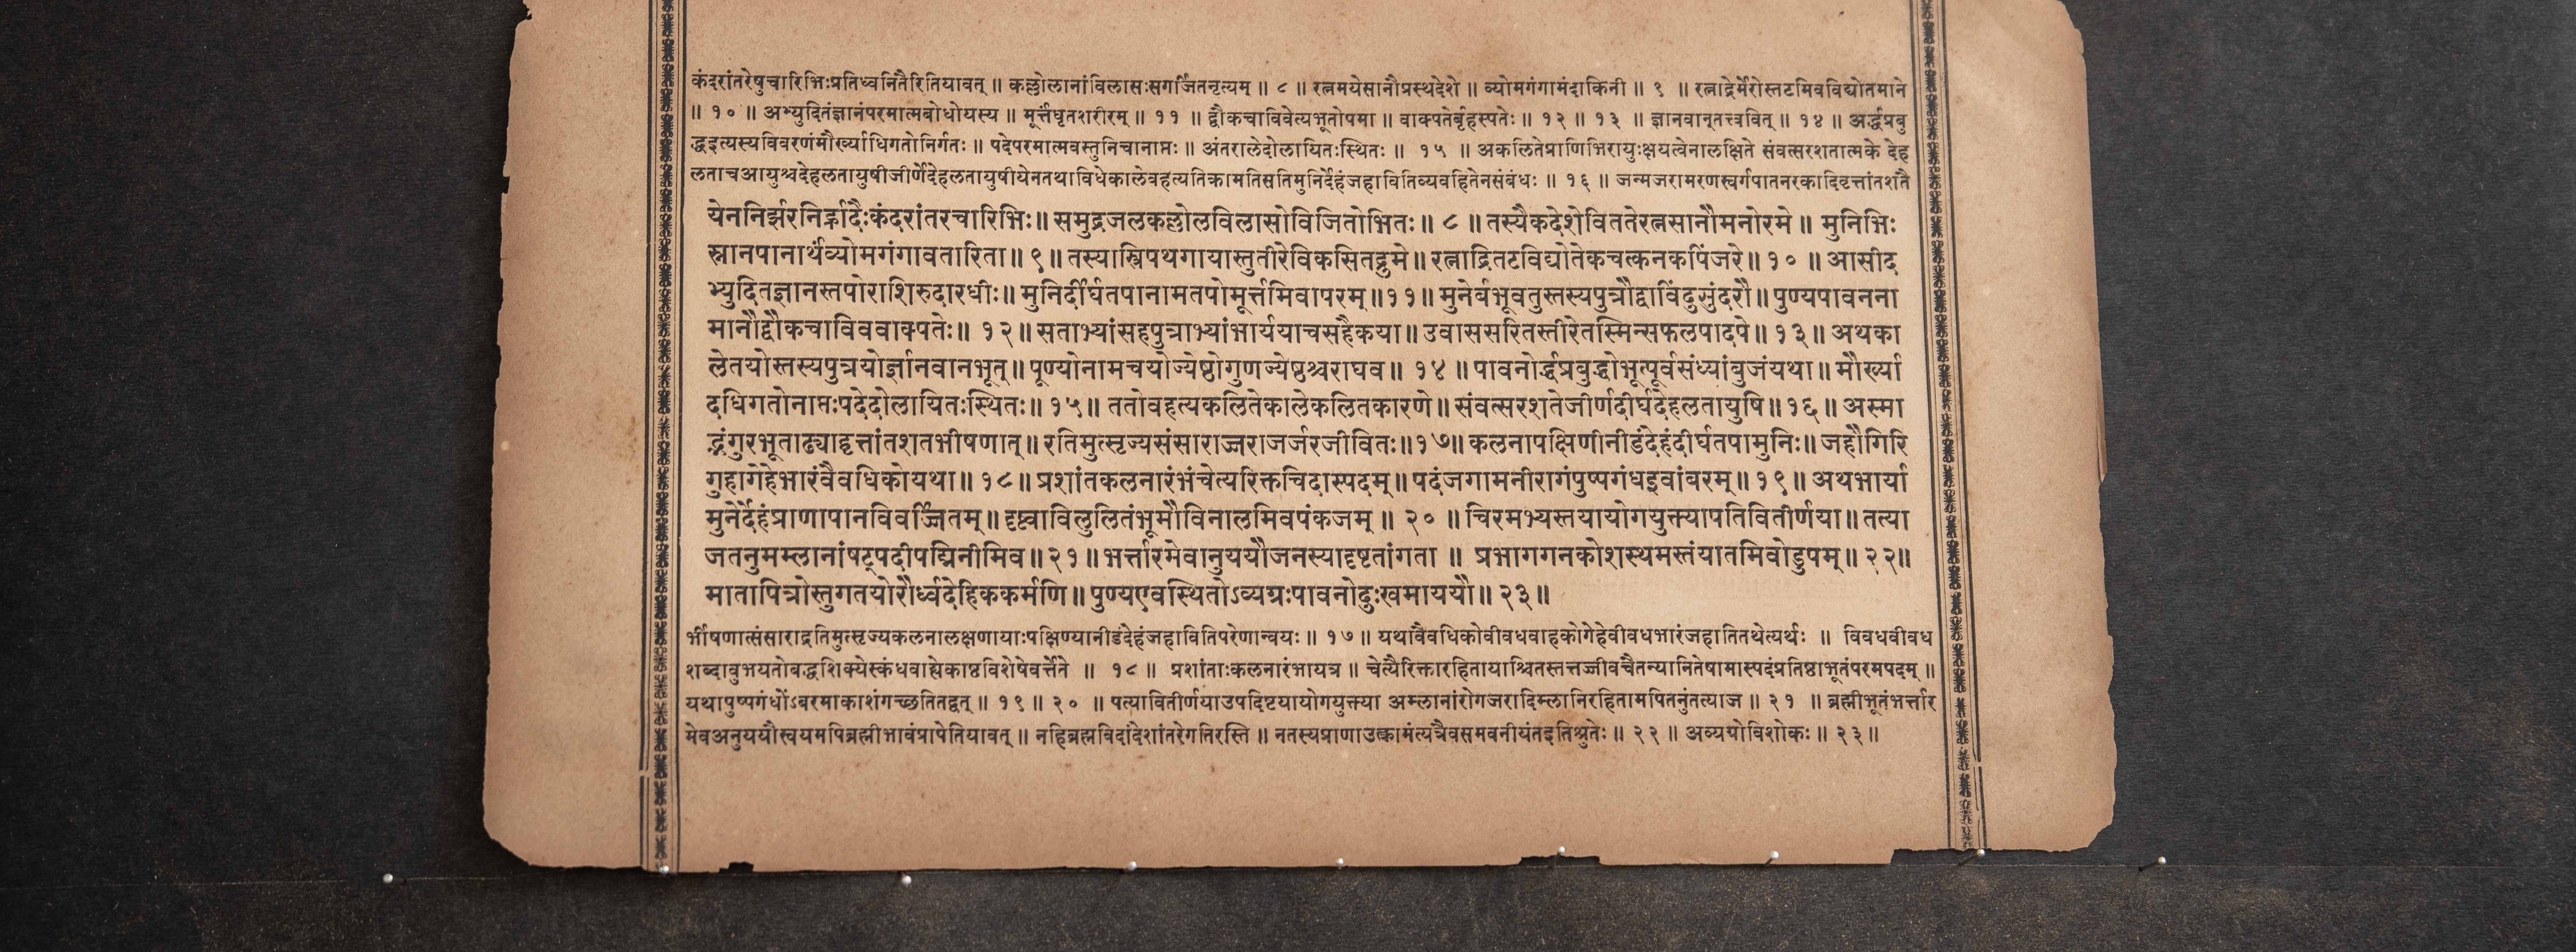 कंदरांतरेषुचारिभिःप्रतिध्वनितैरितियावत् ॥ कल्लोलानांविलासःसगर्जितनृत्यम् ॥ ८ ॥ रत्नमयेसानौप्रस्थदेशे ॥ व्योमगंगामंदाकिनी ॥ ९ ॥ रत्नाद्रेर्मेरोस्तटमिवविद्योतमाने
॥ १० ॥ अभ्युदितंज्ञानंपरमात्मबोधोयस्य ॥ मूर्त्तंधृतशरीरम् ॥ ११ ॥ द्वौकचाविवेत्यभूतोपमा ॥ वाक्पतेर्बृहस्पतेः ॥ १२ ॥ १३ ॥ ज्ञानवान्तत्त्ववित् ॥ १४ ॥ अर्द्धप्रबु
द्धइत्यस्यविवरणंमौर्ख्याधिगतोनिर्गतः ॥ पदेपरमात्मवस्तुनिचानाप्तः ॥ अंतरालेदोलायितःस्थितः ॥ १५ ॥ अकलितेप्राणिभिरायुःक्षयत्वेनालक्षिते संवत्सरशतात्मके देह
लताचआयुश्चदेहलतायुषीजीर्णेदेहलतायुषीयेनतथाविधेकालेवहत्यतिक्रामतिसतिमुनिर्देहंजहावितिव्यवहितेनसंबंधः ॥ १६ ॥ जन्मजरामरणस्वर्गपातनरकादिवृत्तांतशतै
येननिर्झरनिर्ह्रादैःकंदरांतरचारिभिः॥ समुद्रजलकल्लोलविलासोविजितोभितः॥ ८ ॥ तस्यैकदेशेविततेरत्नसानौमनोरमे ॥ मुनिभिः
स्नानपानार्थंव्योमगंगावतारिता॥ ९॥ तस्यास्त्रिपथगायास्तुतीरेविकसितद्रुमे॥ रत्नाद्रितटविद्योतेकचत्कनकपिंजरे॥१० ॥ आसीद
भ्युदितज्ञानस्तपोराशिरुदारधीः॥ मुनिर्दीर्घतपानामतपोमूर्त्तमिवापरम्॥११॥ मुनेर्बभूवतुस्तस्यपुत्रौद्वाविंदुसुंदरौ॥ पुण्यपावनना
मानौद्वौकचाविववाक्पतेः॥ १२॥ सताभ्यांसहपुत्राभ्यांभार्ययाचसहैकया॥ उवाससरितस्तीरेतस्मिन्सफलपादपे॥ १३॥ अथका
लेतयोस्तस्यपुत्रयोर्ज्ञानवानभूत्॥ पूण्योनामचयोज्येष्ठोगुणज्येष्ठश्चराघव॥ १४ ॥ पावनोर्द्धप्रबुद्धोभूत्पूर्वसंध्यांबुजंयथा॥ मौर्ख्या
दधिगतोनाप्तःपदेदोलायितःस्थितः॥ १५॥ ततोवहत्यकलितेकालेकलितकारणे॥ संवत्सरशतेजीर्णदीर्घदेहलतायुषि॥१६॥ अस्मा
द्भंगुरभूताढ्याद्वृत्तांतशतभीषणात्॥ रतिमुत्सृज्यसंसाराज्जराजर्जरजीवितः॥१७॥ कलनापक्षिणीनीडंदेहंदीर्घतपामुनिः॥ जहौगिरि
गुहागेहेभारंवैवधिकोयथा॥ १८॥ प्रशांतकलनारंभंचेत्यरिक्तचिदास्पदम्॥ पदंजगामनीरागंपुष्पगंधइवांबरम्॥ १९॥ अथभार्या
मुनेर्देहंप्राणापानविवर्ज्जितम्॥ दृष्ट्वाविलुलितंभूमौविनालमिवपंकजम् ॥ २० ॥ चिरमभ्यस्तयायोगयुक्त्यापतिवितीर्णया॥ तत्या
जतनुमम्लानांषट्पदीपद्मिनीमिव॥ २१॥ भर्त्तारमेवानुययौजनस्यादृष्टतांगता ॥ प्रभागगनकोशस्थमस्तंयातमिवोडुपम्॥ २२॥
मातापित्रोस्तुगतयोरौर्ध्वदेहिककर्मणि॥ पुण्यएवस्थितोऽव्यग्रःपावनोदुःखमाययौ॥ २३॥
र्भीषणात्संसाराद्रतिमुत्सृज्यकलनालक्षणायाःपक्षिण्यानीडंदेहंजहावितिपरेणान्वयः ॥ १७ ॥ यथावैवधिकोवीवधवाहकोगेहेवीवधभारंजहातितथेत्यर्थः ॥ विवधवीवध
शब्दावुभयतोबद्धशिक्येस्कंधवाह्येकाष्ठविशेषेवर्त्तेते ॥ १८ ॥ प्रशांताःकलनारंभायत्र ॥ चेत्यैरिक्तारहितायाश्चितस्तत्तज्जीवचैतन्यानितेषामास्पदंप्रतिष्ठाभूतंपरमपदम् ॥
यथापुष्पगंधोंऽबरमाकाशंगच्छतितद्वत् ॥ १९ ॥ २० ॥ पत्यावितीर्णयाउपदिष्टयायोगयुक्त्या अम्लानांरोगजरादिम्लानिरहितामपितनुंतत्याज ॥ २१ ॥ ब्रह्मीभूतंभर्त्तार
मेवअनुययौस्वयमपिब्रह्मीभावंप्रापेतियावत् ॥ नहिब्रह्मविदांदेशांतरेगतिरस्ति ॥ नतस्यप्राणाउत्क्रामंत्यत्रैवसमवनीयंतइतिश्रुतेः ॥ २२ ॥ अव्यग्रोविशोकः ॥ २३॥